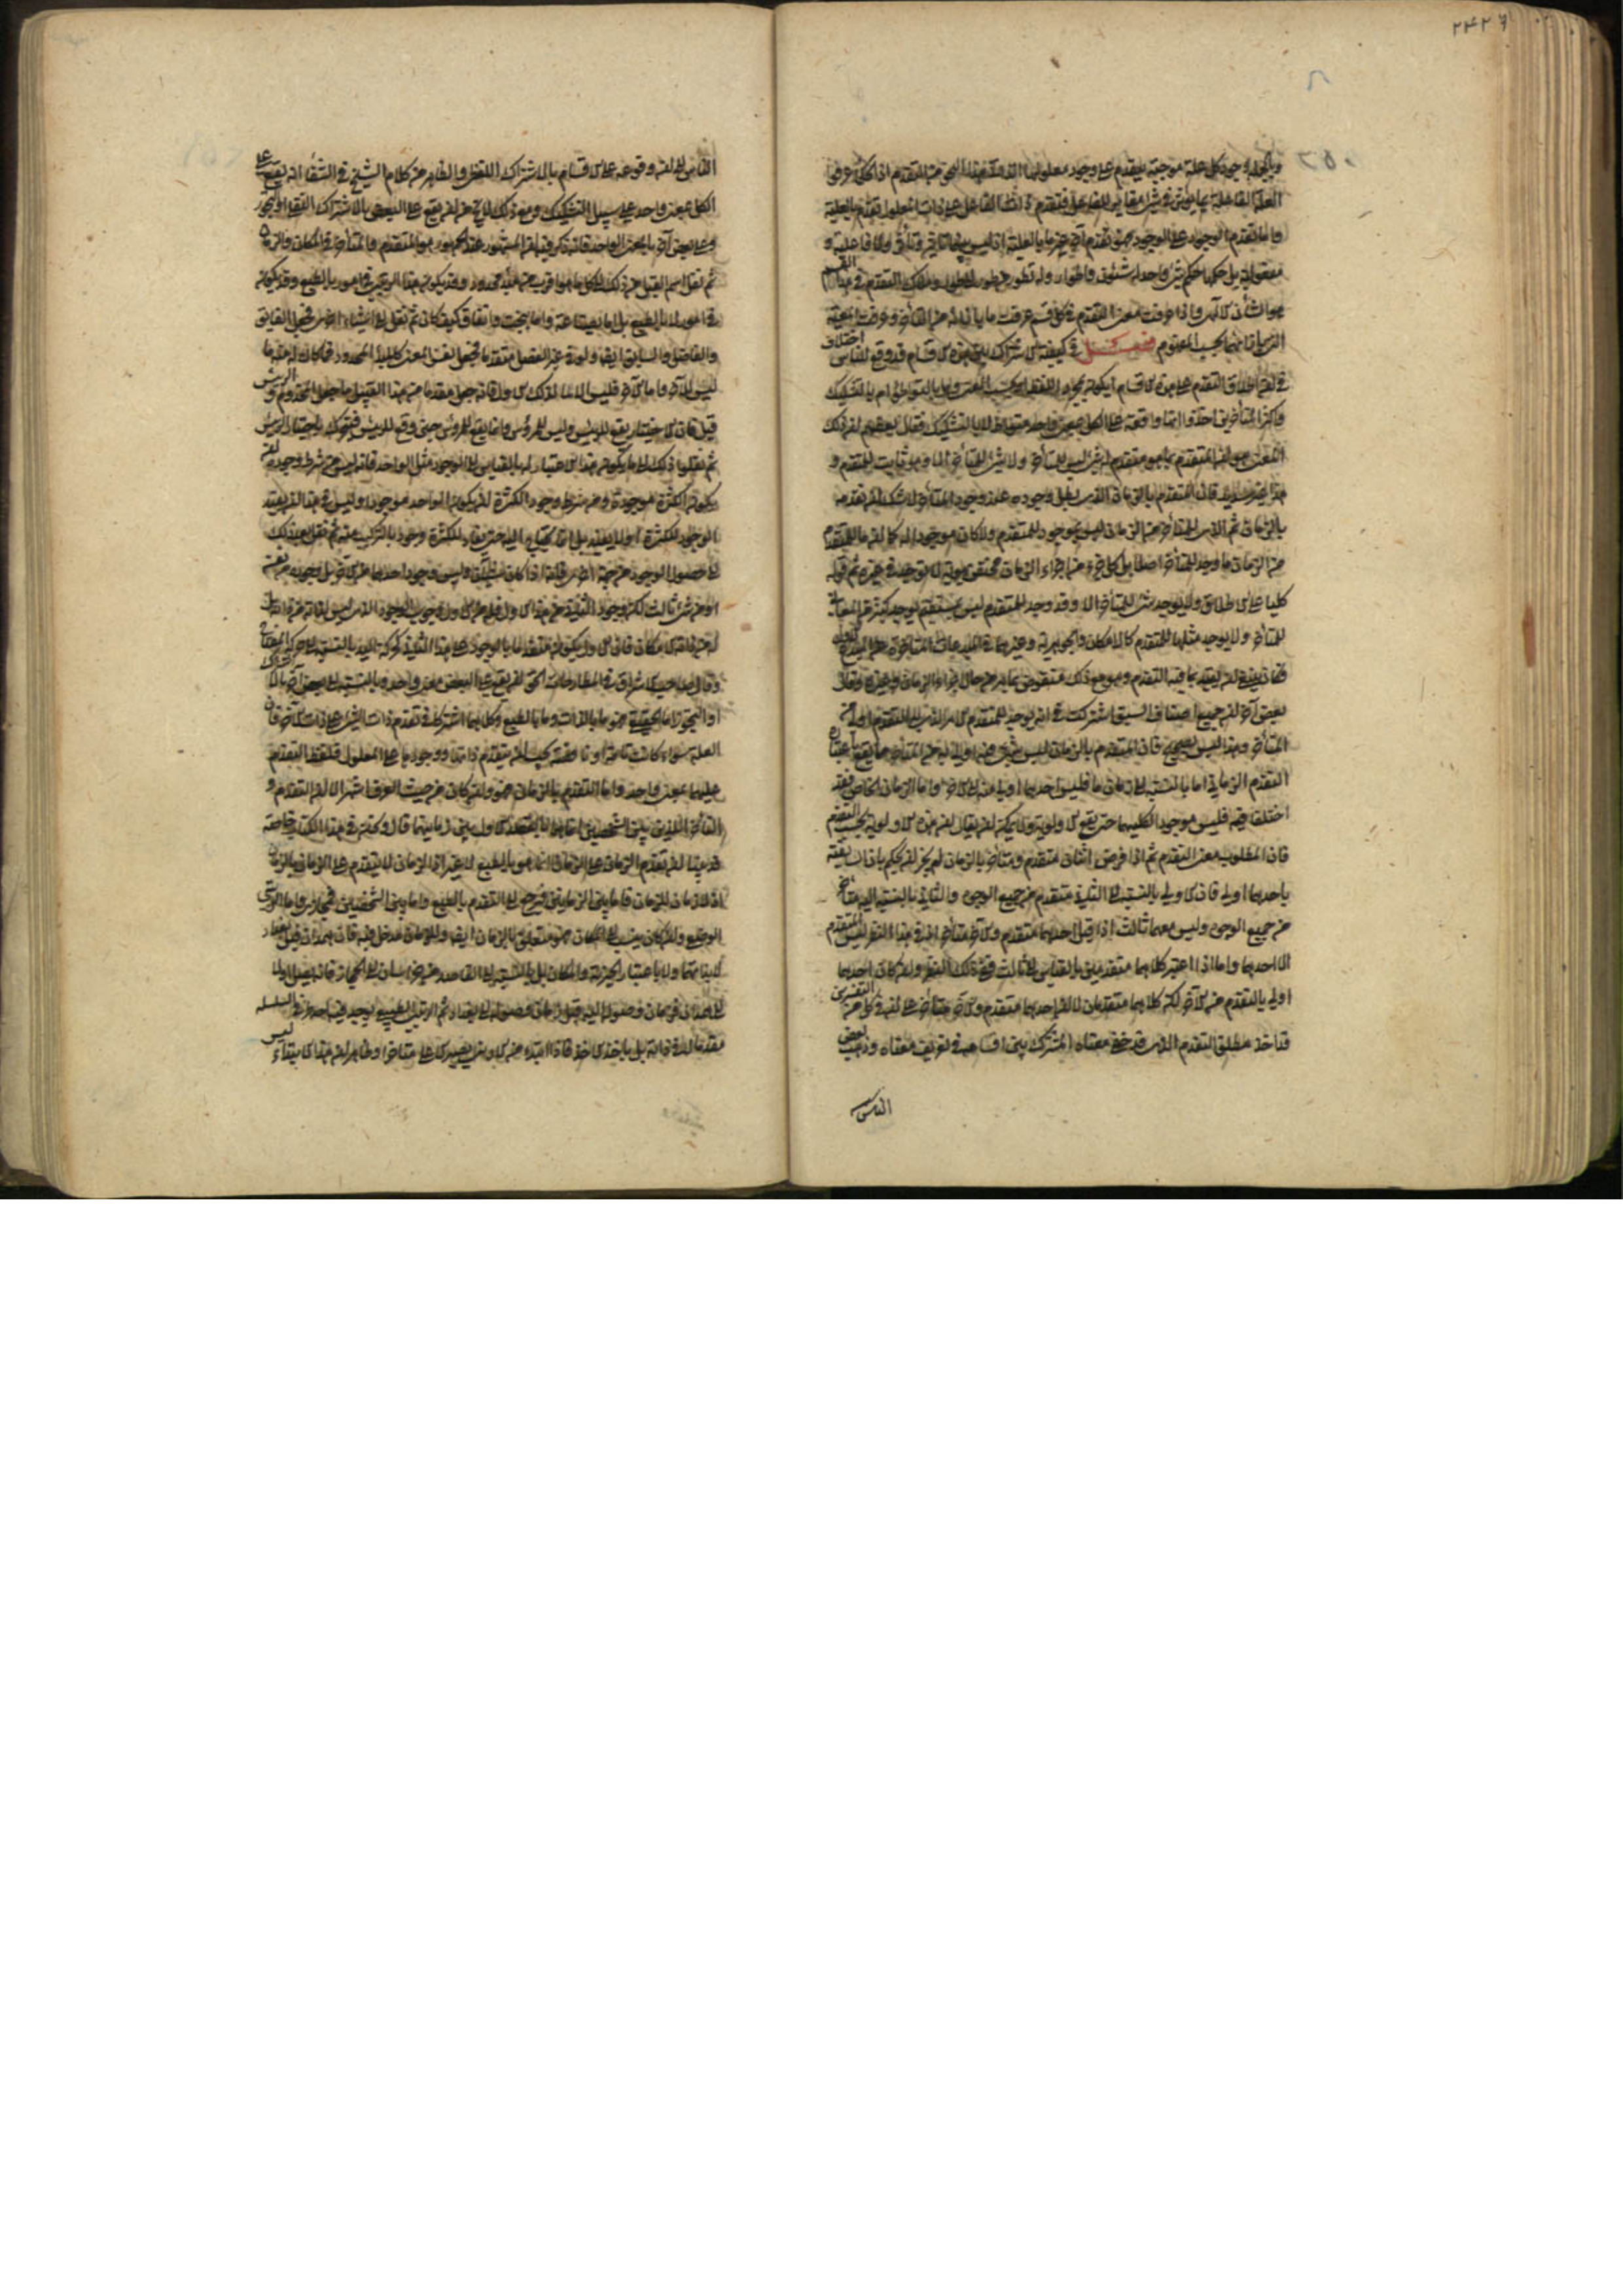 ٢٤٢٦
٢٥٠
وبالجملة وجود كل علة موجبة يتقدم على وجود معلولها الذاتي هذا النحو من التقدم اذ الحكماء عرفوا
العلة الفاعلة بما يؤثر في شيء مغاير للفاعل فتقدم ذات الفاعل على ذات المعلول تقدم بالعلية
واما تقدم الوجود على الوجود فهو تقدم آخر غير ما بالعلية اذ ليس بينهما تأثير وتأثر ولا فاعلية و
مفعولية بل حكمهما حكم شيء واحد له شئون واطوار وله تطور من طور الى طور وملاك التقدم في هذا القسم
هو الشأن الالهي واذا عرفت معنى التقدم في كل قسم عرفت ما بازائه من التأخر وعرفت المعية
التي بازائهما بحسب المفهوم فصل في كيفية الاشتراك بين هذه الاقسام قد وقع للناس اختلاف
في ان اطلاق التقدم على هذه الاقسام أيكون بمجرد اللفظ او بحسب المعنى وهل بالتواطي ام بالتشكيك
واكثر المتأخرين اخذوا انها واقعة على الكل بمعنى واحد متواط لا بالتشكيك فقال بعضهم ان ذلك
المعنى هو ان المتقدم بما هو متقدم له شيء ليس للمتأخر ولا شيء للمتأخر الا وهو ثابت للمتقدم و
هذا غير سديد فان المتقدم بالزمان الذي بطل وجوده عند وجود المتأخر لا شك ان تقدمه
بالزمان ثم الذي للمتأخر من الزمان ليس بموجود للمتقدم ولا كان موجودا له كما ان ما للمتقدم
من الزمان ما وجد للمتأخر اصلا بل كل جزء من اجزاء الزمان مختص بهوية لا توجد في غيره ثم قوله
كليا على الاطلاق ولا يوجد شيء للمتأخر الا وقد وجد للمتقدم ليس بمستقيم لوجود كثير من المعاني
للمتأخر ولا يوجد مثلها للمتقدم كالامكان والجوهرية وغيرهما في المبدعات المتأخرة عن المبدع الاول
فكان ينبغي ان يقيد بما فيه التقدم وهو مع ذلك منقوض بما مر من حال اجزاء الزمان وغيره وقال
بعض آخر ان جميع اصناف السبق اشتركت في انه يوجد للمتقدم الامر الذي به المتقدم اولى من
المتأخر وهذا ليس بصحيح فان المتقدم بالزمان ليس شيء فيه اولى له من المتأخر مما يقع باعتباره
التقدم الزماني اما بالنسبة الى زمان ما فليس احدهما اولى منه الاخر واما الزمان الخاص فقد
اختلفا فيه فليس موجودا لكليهما حتى يقع الاولوية ولا يمكن ان يقال ان هذه الاولوية بحسب التقدم
فاذا المطلوب معنى التقدم ثم اذا فرض اثنان متقدم ومتأخر بالزمان لم يجز ان يحكم بان السابقية
باحدهما اولى فان الاولى بالنسبة الى الثاني متقدم من جميع الوجوه والثاني بالنسبة اليه متأخر
من جميع الوجوه وليس معهما ثالث اذا قيل احدهما متقدم والآخر متأخر اذ في هذا النظر ليس المتقدم
الا احدهما واما اذا اعتبر كلاهما متقدمين بالقياس الى ثالث ففي ذلك النظر وان كان احدهما
اولى بالتقدم من الآخر لكن كلاهما متقدمان لا ان احدهما متقدم والآخر متأخر على ان في كل من التفسيرين
قد اخذ مطلق التقدم الذي قد خفي معناه المشترك بين اقسامه في تعريف معناه وذهب بعض
الناس
الناس الى ان وقوعه على الاقسام بالاشتراك اللفظي والظاهر من كلام الشيخ في الشفاء انه يقع على
الكل بمعنى واحد على سبيل التشكيك ومع ذلك لا يخ من ان يقع على البعض بالاشتراك النقلي او التجوز
وعلى بعض آخر بالمعنى الواحد فانه ذكر فيه ان المشهور عند الجمهور هو المتقدم والمتأخر في المكان والزمان
ثم نقل اسم القبل من ذلك الى كل ما هو اقرب من مبدأ محدود وقد يكون هذا الرتبي في امور بالطبع وقد يكون
في امور لا بالطبع بل اما بصناعة واما ببخت واتفاق كيف كان ثم نقل الى اشياء اخر فجعل الفائق
والفاضل والسابق ايضا ولو في غير الفضل متقدما فجعل نفس المعنى كالمبدأ المحدود فما كان له منه ما
ليس للآخر واما الآخر فليس له الا ما لذلك الاول فانه جعل متقدما من هذا القبيل ما جعل المخدوم والرئيس
قبل فان الاختيار يقع للرئيس وليس للمرؤس وانما يقع للمرؤس حين وقع للرئيس فيتحرك باختيار الرئيس
ثم نقلوا ذلك الى ما يكون هذا الاعتبار له بالقياس الى الوجود مثل الواحد فانه ليس من شرط وجوده ان
يكون الكثرة موجودة ومن شرط وجود الكثرة ان يكون الواحد موجودا وليس في هذا انه يفيد
الوجود للكثرة او لا يفيد بل انه يحتاج اليه حتى يفاد للكثرة وجود بالتركيب منه ثم نقل بعد ذلك
الى حصول الوجود من جهة اخرى فانه اذا كان شيئان وليس وجود احدهما من الآخر بل وجوده من نفسه
او من شيء ثالث لكن وجود الثاني من هذا الاول فله من الاول وجوب الوجود الذي ليس لذاته من ذاته بل
له من ذاته الامكان فان الاول يكون متقدما بالوجود على هذا الثاني كحركة اليد بالنسبة الى حركة المفتاح
وقال صاحب الاشراق في المطارحات الحق ان يقع على البعض بمعنى واحد وبالنسبة الى بعض آخر بالاشتراك
او التجوز اما الحقيقي فهو ما بالذات وما بالطبع وكلاهما اشتركا في تقدم ذات الشيء على ذات الآخر فان
العلة سواء كانت تامة او ناقصة يجب ان يتقدم ذاتها ووجودها على المعلول فلفظ التقدم
عليهما بمعنى واحد واما التقدم بالزمان فهو وان كان من حيث العرف اشهر الا ان التقدم و
التأخر اللذين بين الشخصين انما هما بالقصد الاول بين زمانيهما قال وكنت في هذا الكتاب خاصة
قد بينا ان تقدم الزمان على الزمان انما هو بالطبع لا غير اذ الزمان لا يتقدم على الزمان بالزمان
اذ لا زمان للزمان فاما بين الزمانين فيرجع الى التقدم بالطبع واما بين الشخصين فمجازي واما الرتبي
الوضعي وان كان ينسب الى المكان فهو متعلق بالزمان ايضا وللزمان مدخل فيه فان همدان قبل بغداد
لا بذاتهما ولا باعتبار الحيز والمكان بل بالنسبة الى القاصد من خراسان الى الحجاز فانه يصل اولا
الى همدان فزمان وصوله اليه قبل زمان وصوله الى بغداد ثم الرتبي الطبيعي يوجد فيه احد طرفي السلسلة
مقدما لا في ذاته بل بأخذ الآخذ فاذا ابتدئ من الادنى يصير الاعلى متأخرا وظاهر ان هذا الابتداء ليس